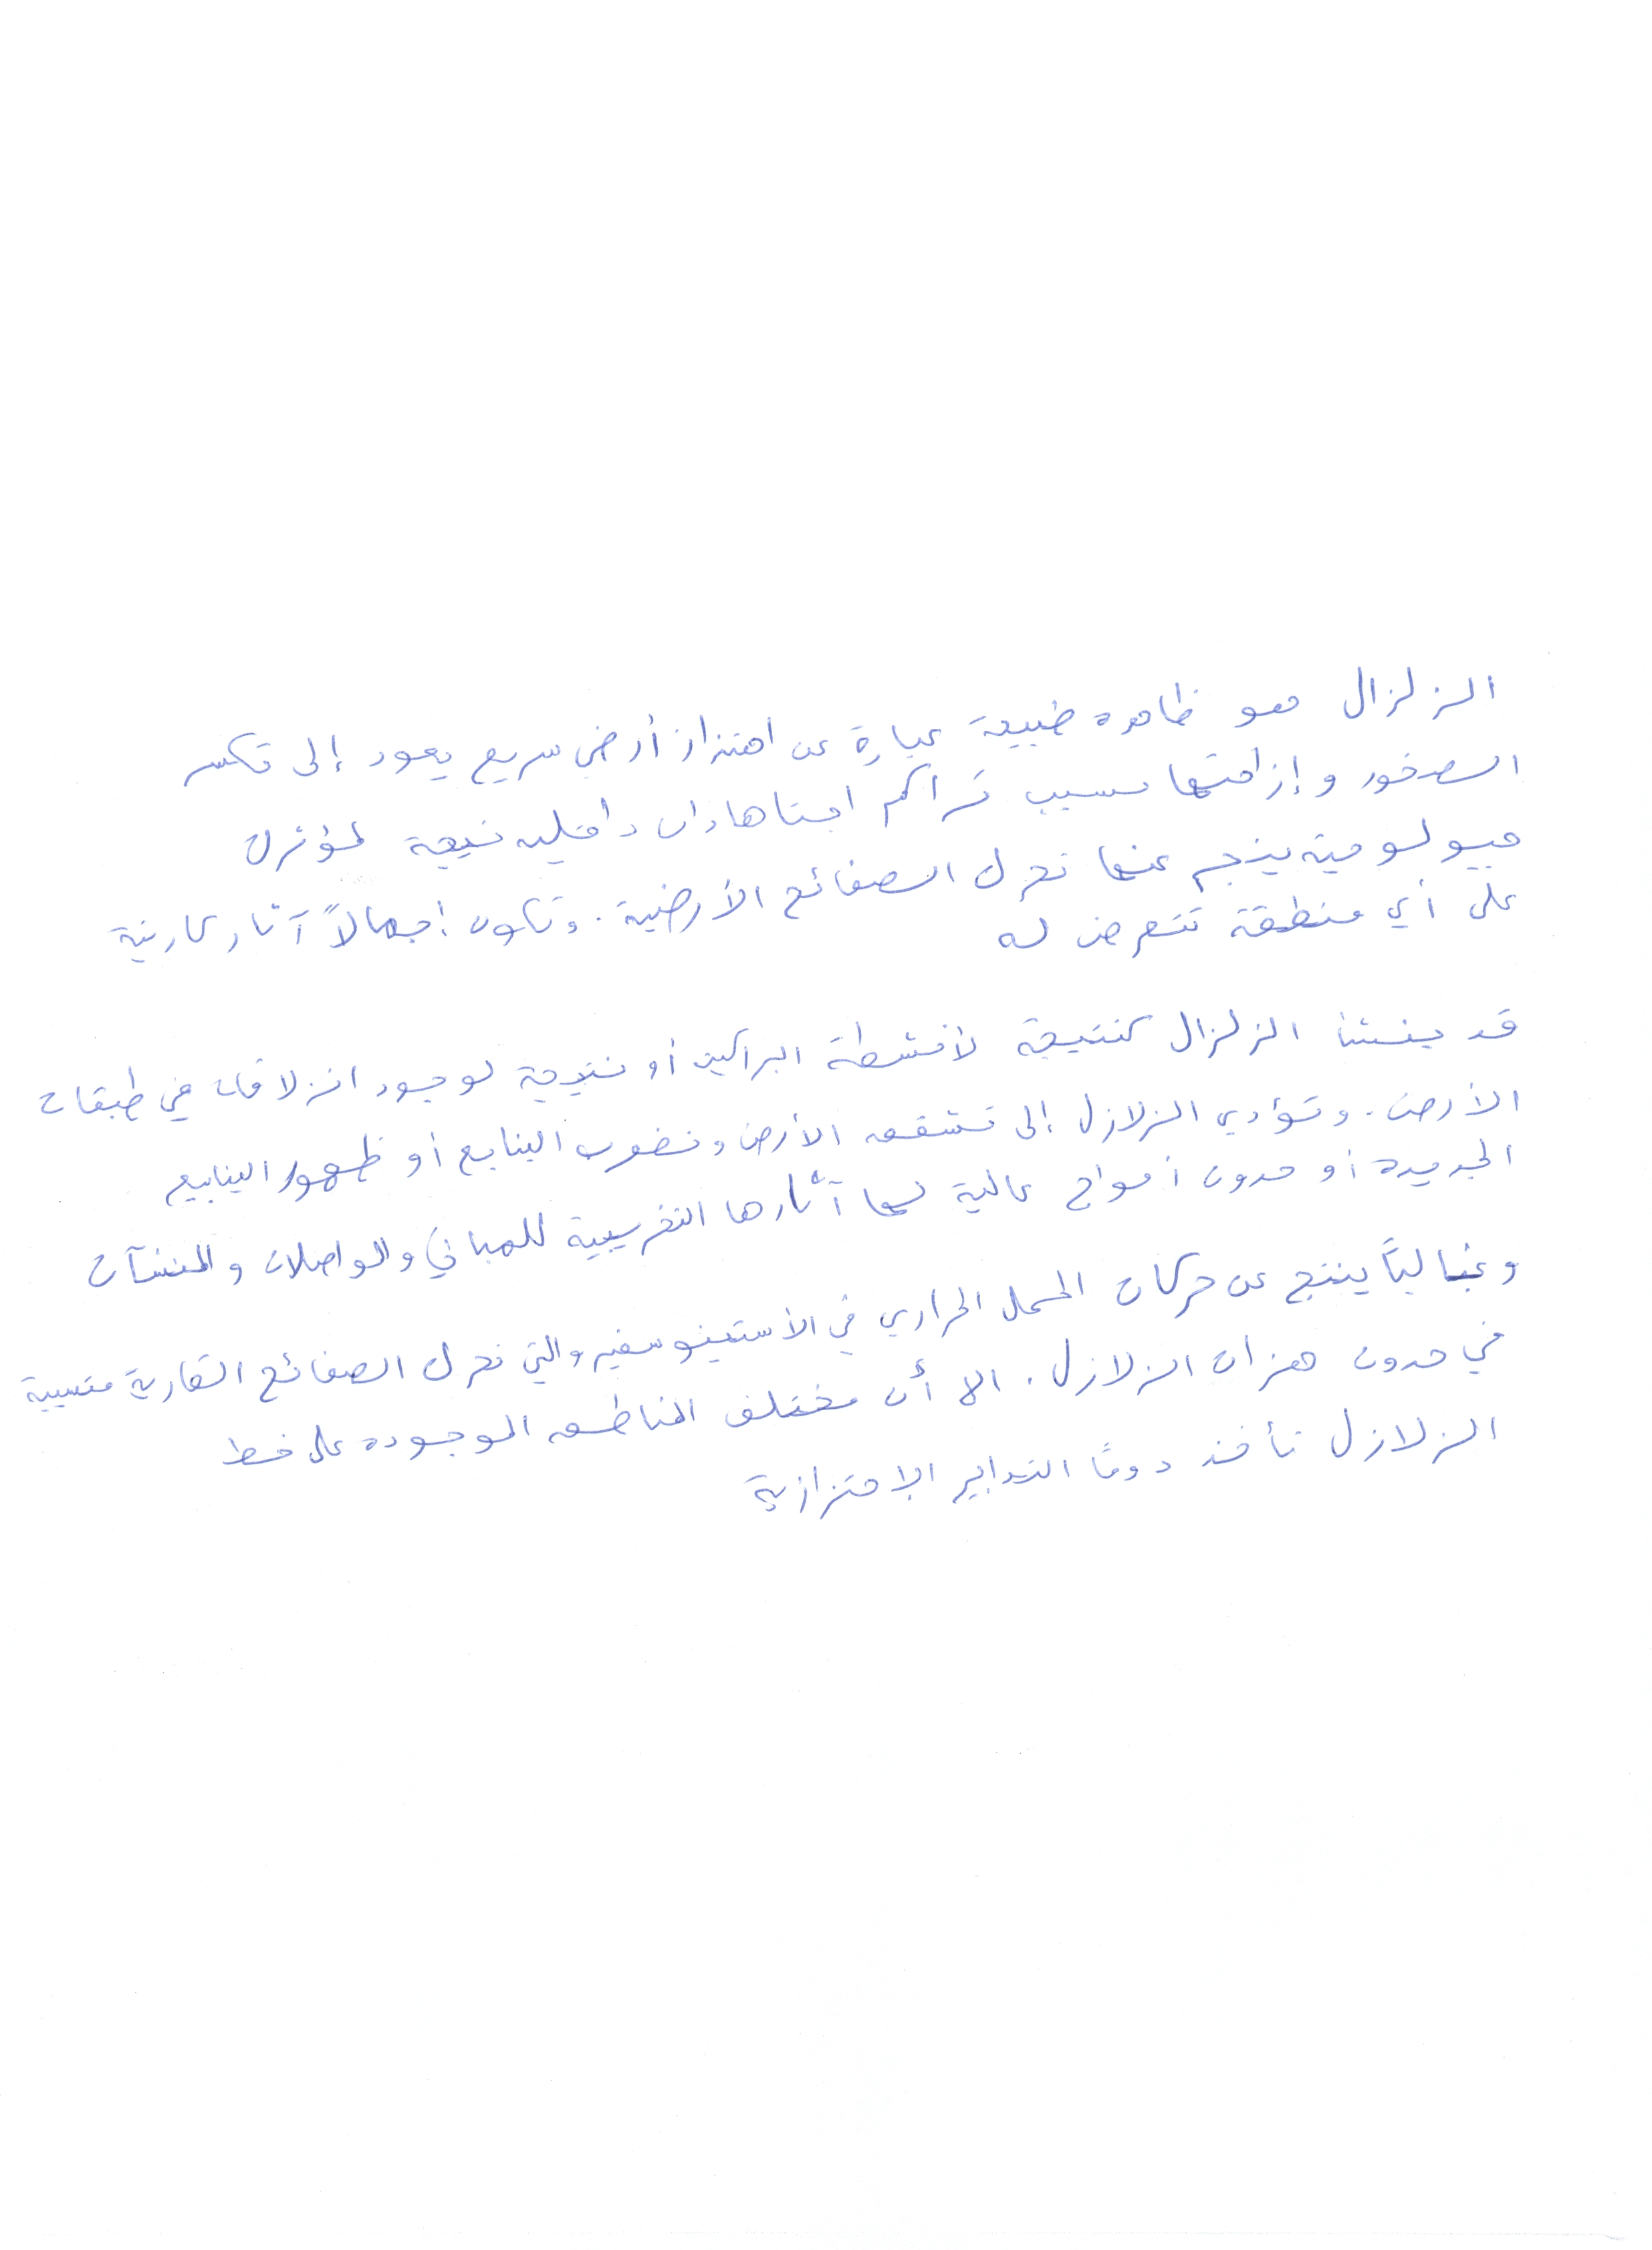 الزلزال هو ظاهرة طبيعة عبارة عن اهتزاز أرضي سريع يعود إلى تكسر
الصخور وإزاحتها بسبب تراكم اجتاهادات داخليه نتيجة لمؤثرات
جيولوجية ينجم عنها تحرك الصفائح الأرضية. وتكون إجمالاً آثار كارثية
على أي منطقة تتعرض له
قد ينشئا الزلزال كنتيجة لأنشطة البراكين أو نتيجة لوجود انزلاقات في طبقات
الأرض. وتؤدي الزلازل إلى تشقق الأرض ونضوب الينابع أو ظهور الينابيع
الجديدة أو حدوث أمواج عالية لها آثارها التخريبية للمباني والمواصلات والمنشآت
وغالباً ينتج عن حركات الحمل الحراري في الأستينوسفير والتي تحرك الصفائح القارية متسببة
في حدوث هزات الزلازل. الا أن مختلف المناطق الموجودة على خط
الزلازل تأخذ دومًا التدابير الإحترازية